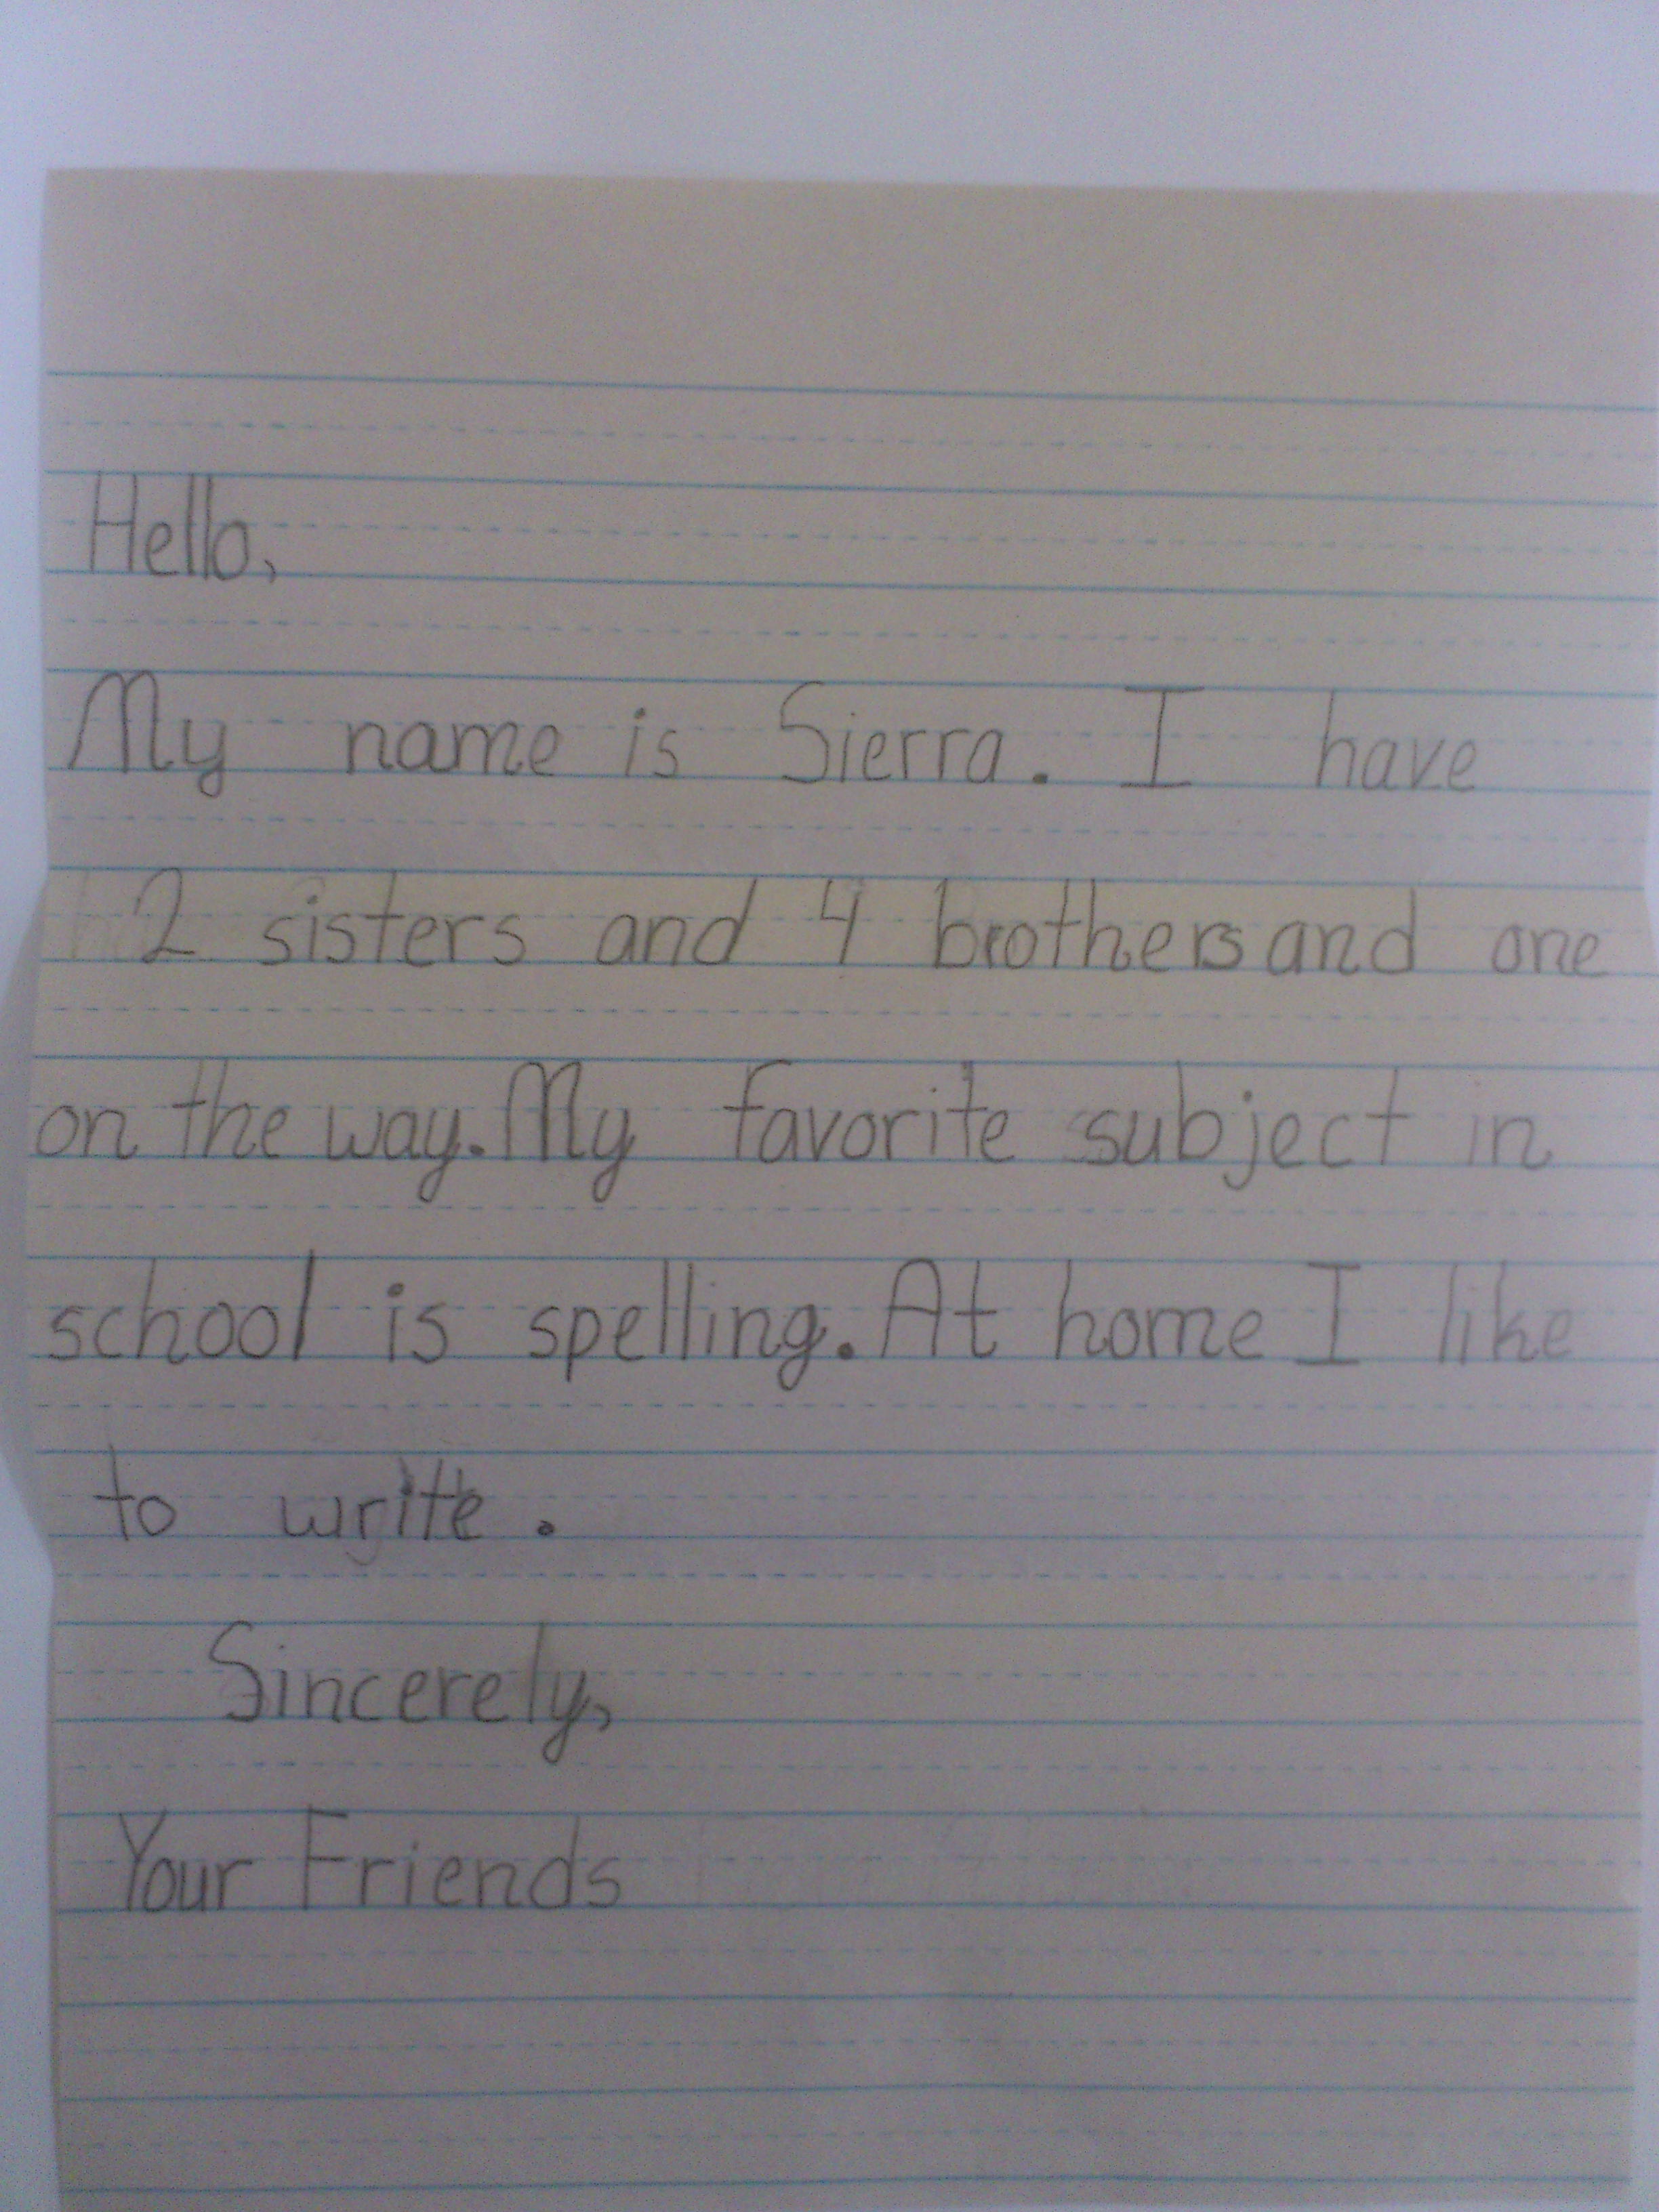 Hello,
My name is Sierra. I have
2 sisters and 4 brothers and one
on the way. My favorite subject in
school is spelling. At home I like
to write.
Sincerely,
Your Friends